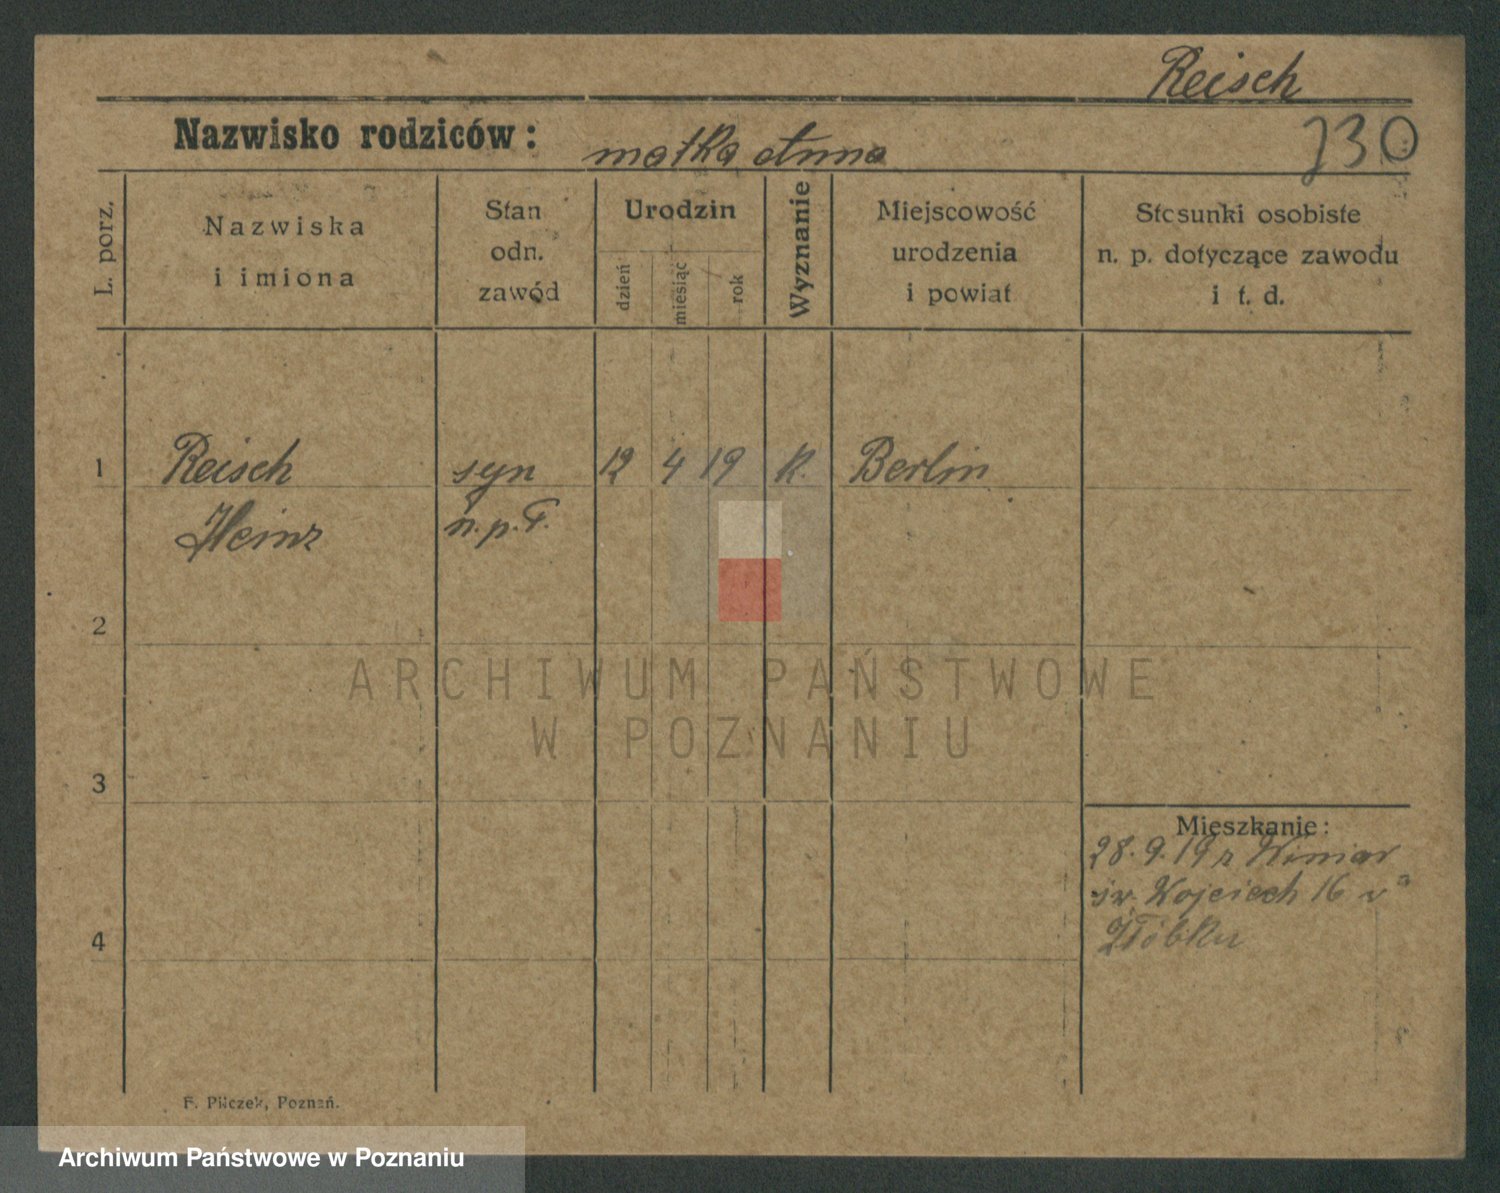 Reisch
Nazwisko rodziców: matka Anna
J30
L. porz.
Nazwiska
i imiona
Stan
odn.
zawód
Urodzin
dzień
miesiąc
rok
Wyznanie
Miejscowość
urodzenia
i powiat
Stosunki osobiste
n. p. dotyczące zawodu
i t. d.
1 Reisch syn 12 4 19 K. Berlin
Heinz n.p.
2
3
4
Mieszkanie:
28.9.19 z Winiar
św. Wojciech 16 v
Żłóbku
F. Pilczek, Poznań.
ARCHIWUM PAŃSTWOWE
W POZNANIU
Archiwum Państwowe w Poznaniu